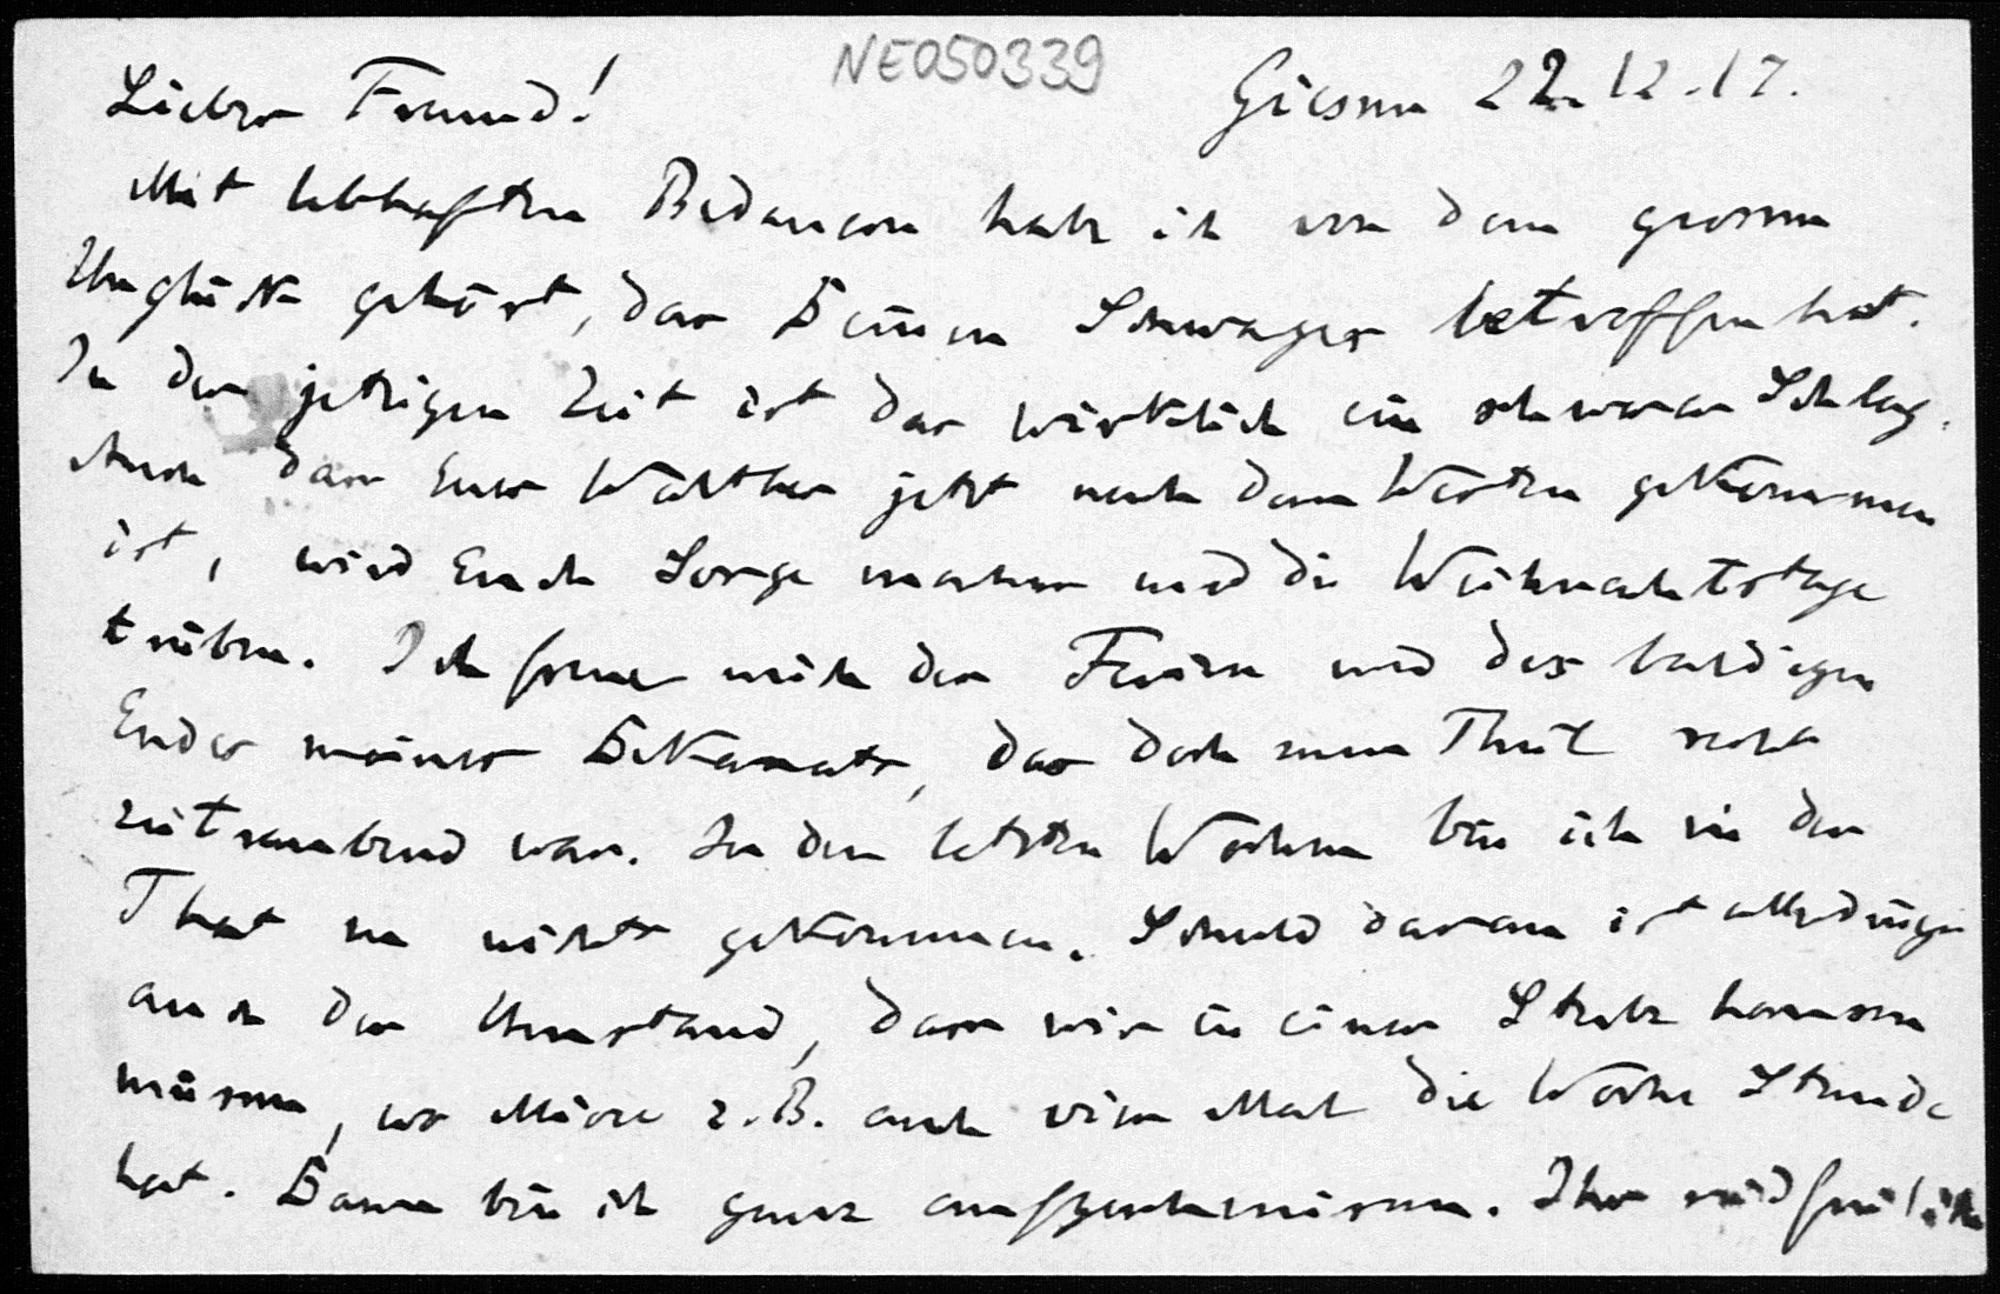 NE050339
Giessen 22.12.17.
Lieber Freund!
Mit lebhaftem Bedauern habe ich von dem grossen
Unglück gehört, das Deinen Schwager betroffen hat.
In der jetzigen Zeit ist das wirklich ein schwerer Schlag.
Auch dass Euer Walther jetzt nach dem Westen gekommen
ist, wird Euch Sorge machen und die Weihnachtstage
trüben. Ich freue mich der Ferien und des baldigen
Endes meines Dekanats, das doch zum Theil recht
zeitraubend war. In den letzten Wochen bin ich in der
That zu nichts gekommen. Schuld daran ist allerdings
auch der Umstand, dass wir in einer Stube hausen
müssen, wo z.B. auch vier Mal die Woche Stunde
hat. Dann bin ich ganz aufgeschmissen. Ihr seid